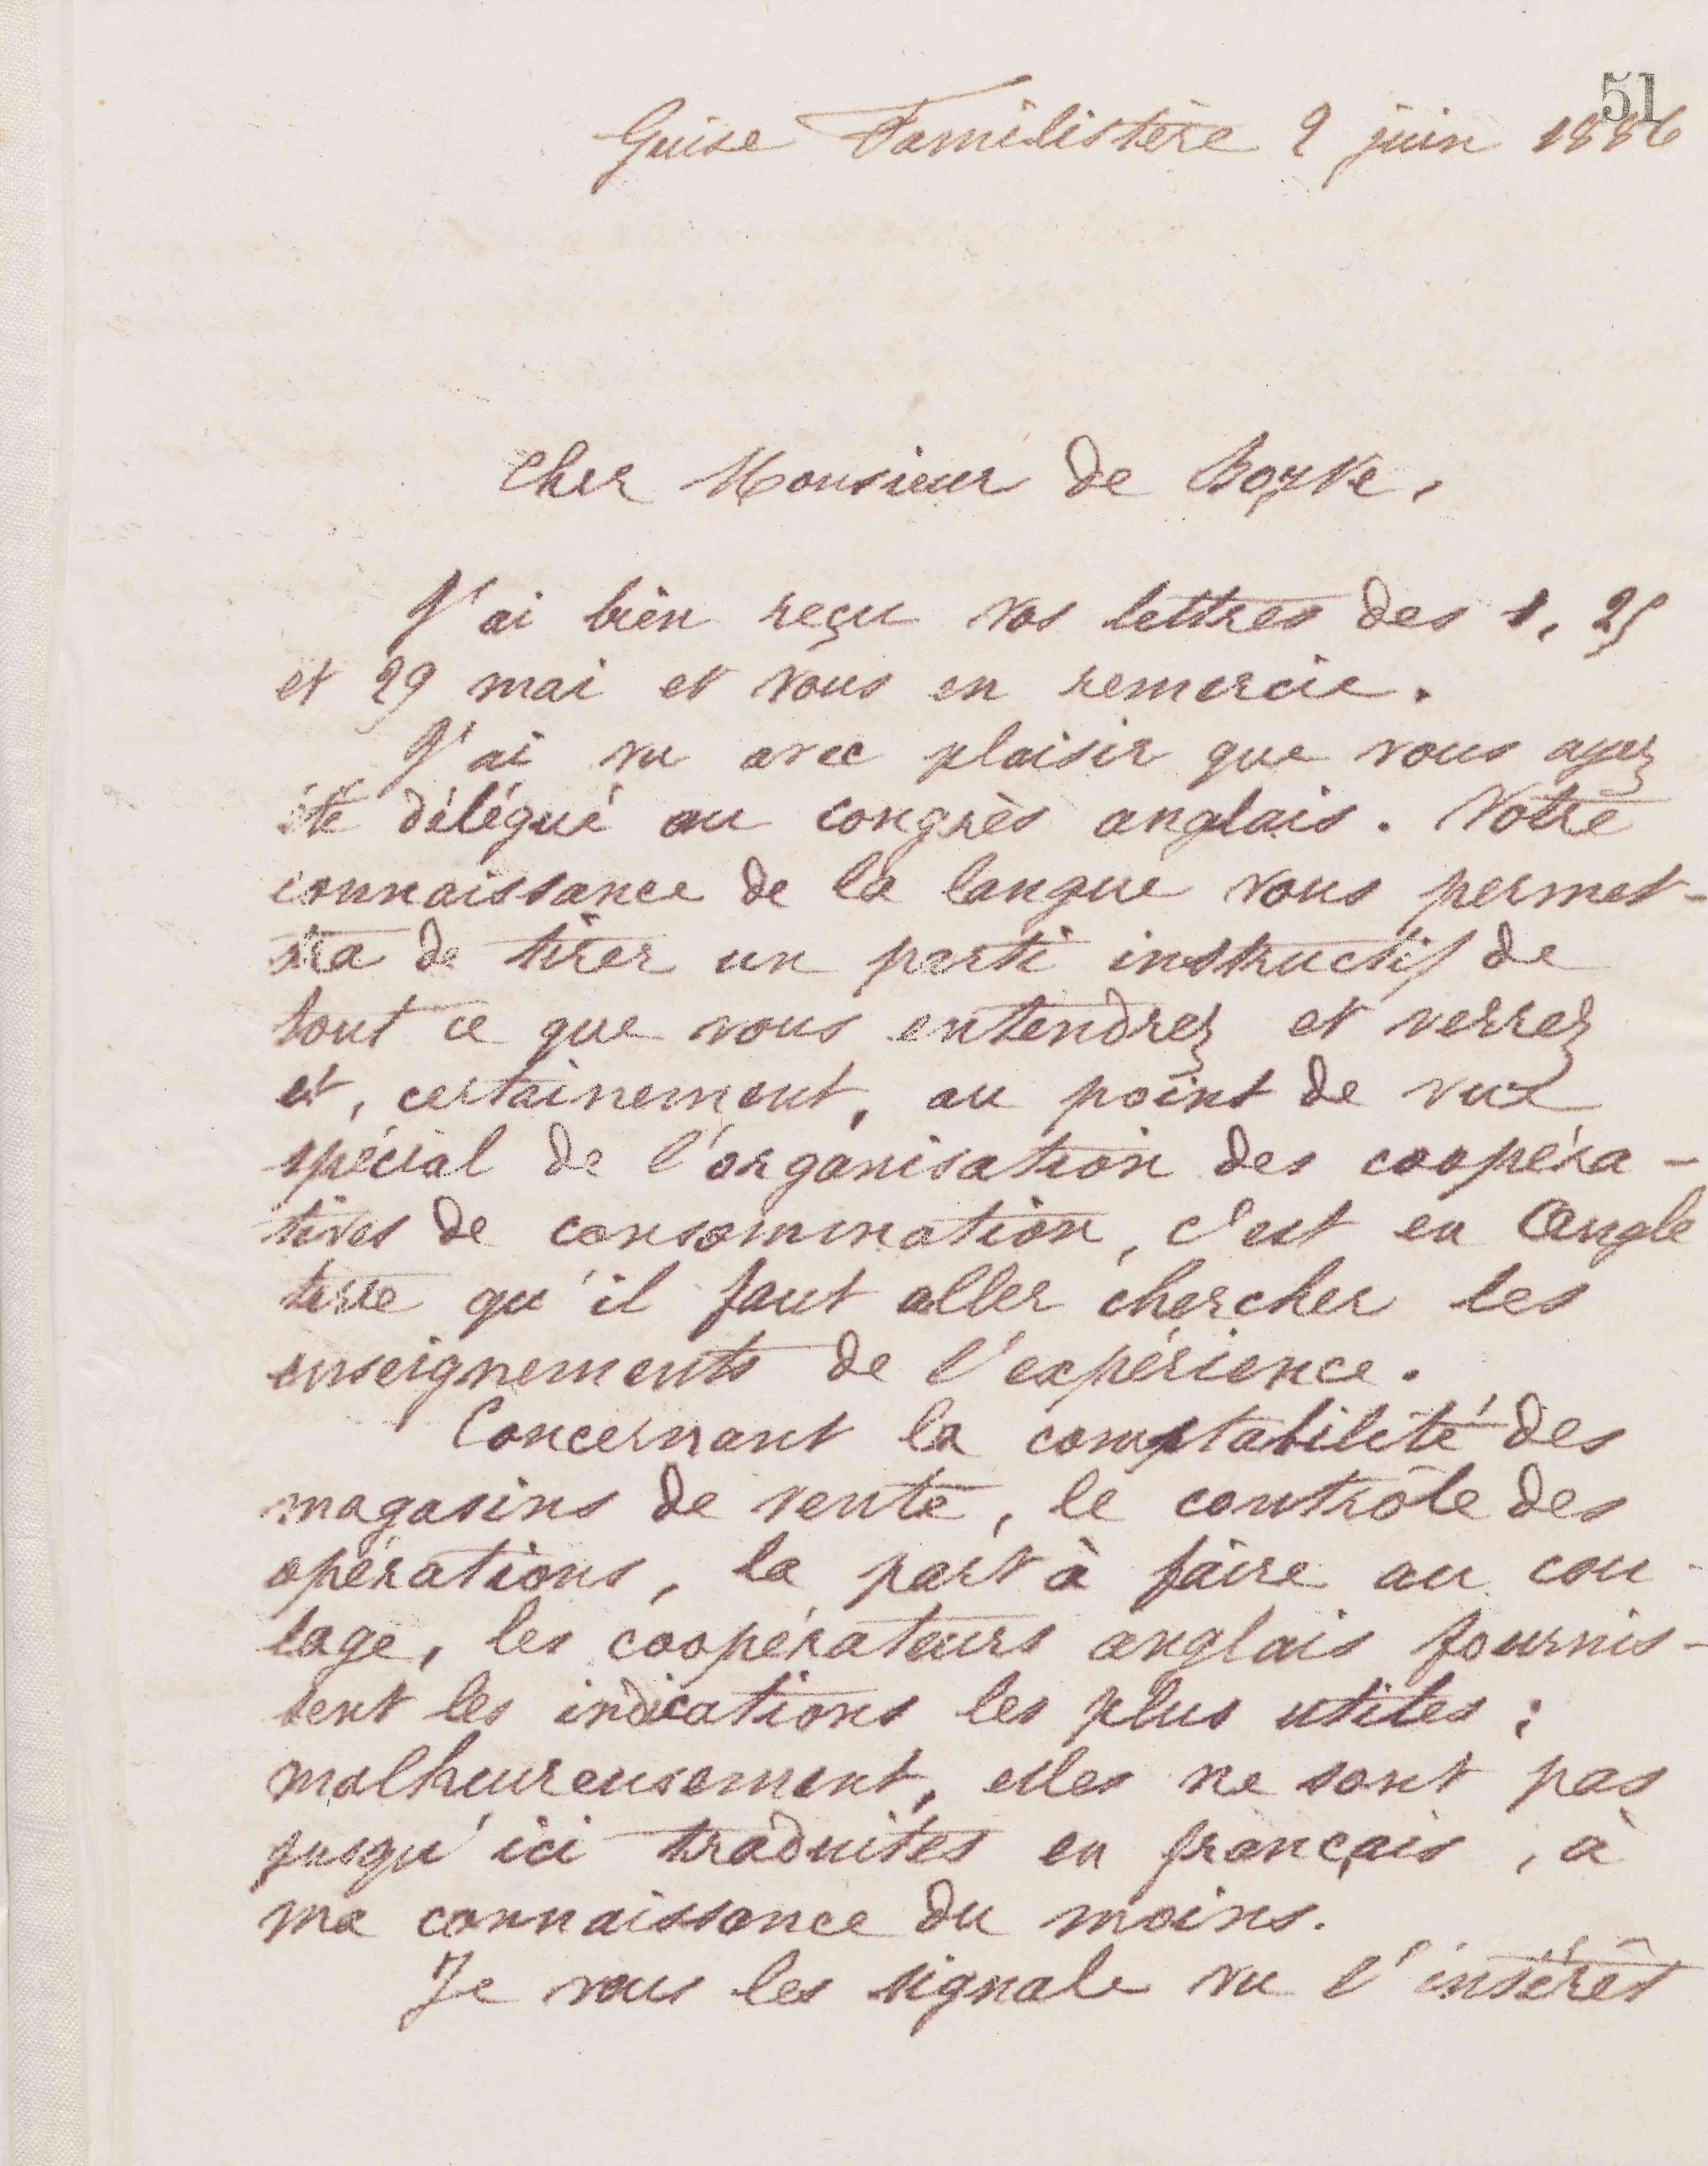 51
Guise Familistère 2 juin 1886
Cher Monsieur de Boyve,
J'ai bien reçu vos lettres des 1, 25
et 29 mai et vous en remercie.
J'ai vu avec plaisir que vous ayez
été délégué au congrès anglais. Votre
connaissance de la langue vous permet-
tra de tirer un parti instructif de
tout ce que vous entendrez et verrez
et, certainement, au point de vue
spécial de l'organisation des coopéra-
tives de consommation, c'est en Angle
terre qu'il faut aller chercher les
enseignements de l'expérience.
Concernant la comptabilité des
magasins de vente, le contrôle des
opérations, la part à faire au cou-
lage, les coopérateurs anglais fournis-
sent les indications les plus utiles ;
malheureusement, elles ne sont pas
jusqu'ici traduites en français, à
ma connaissance du moins.
Je vous les signale vu l'intérêt